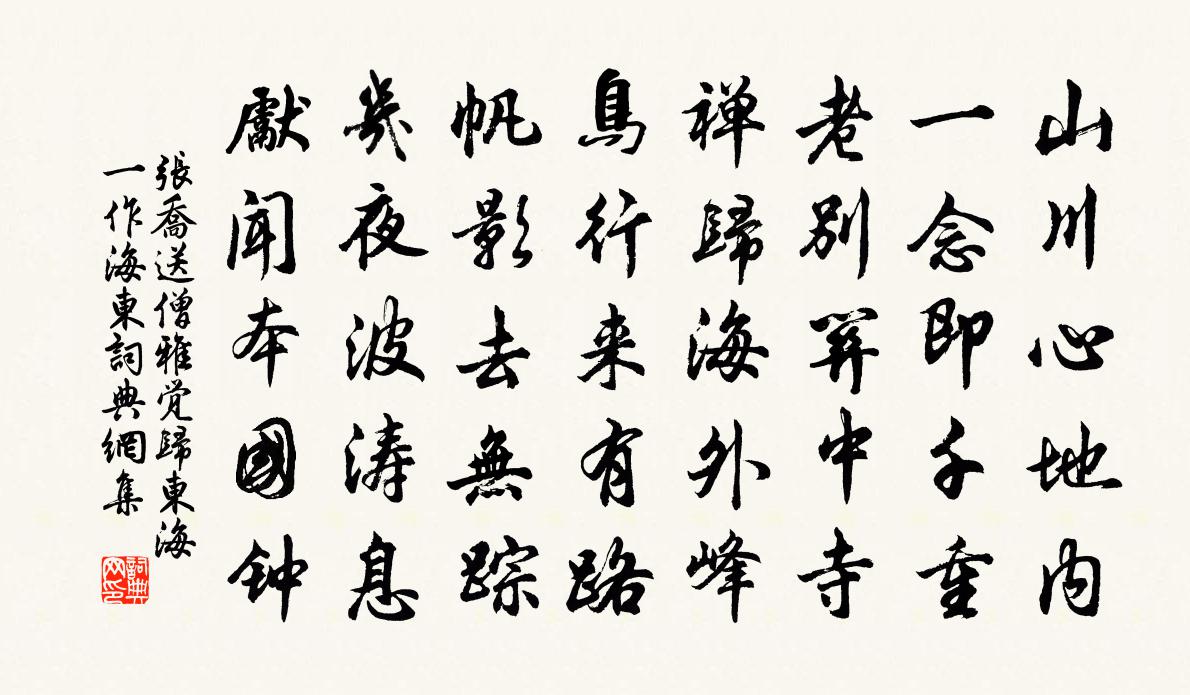 山川心地内
一念即千重
老别關中寺
禅歸海外峰
鳥行来有路
帆影去無踪
幾夜波涛息
獻聞本國钟
張喬送僧雅觉歸東海
一作海東詞典網集
詞典网印